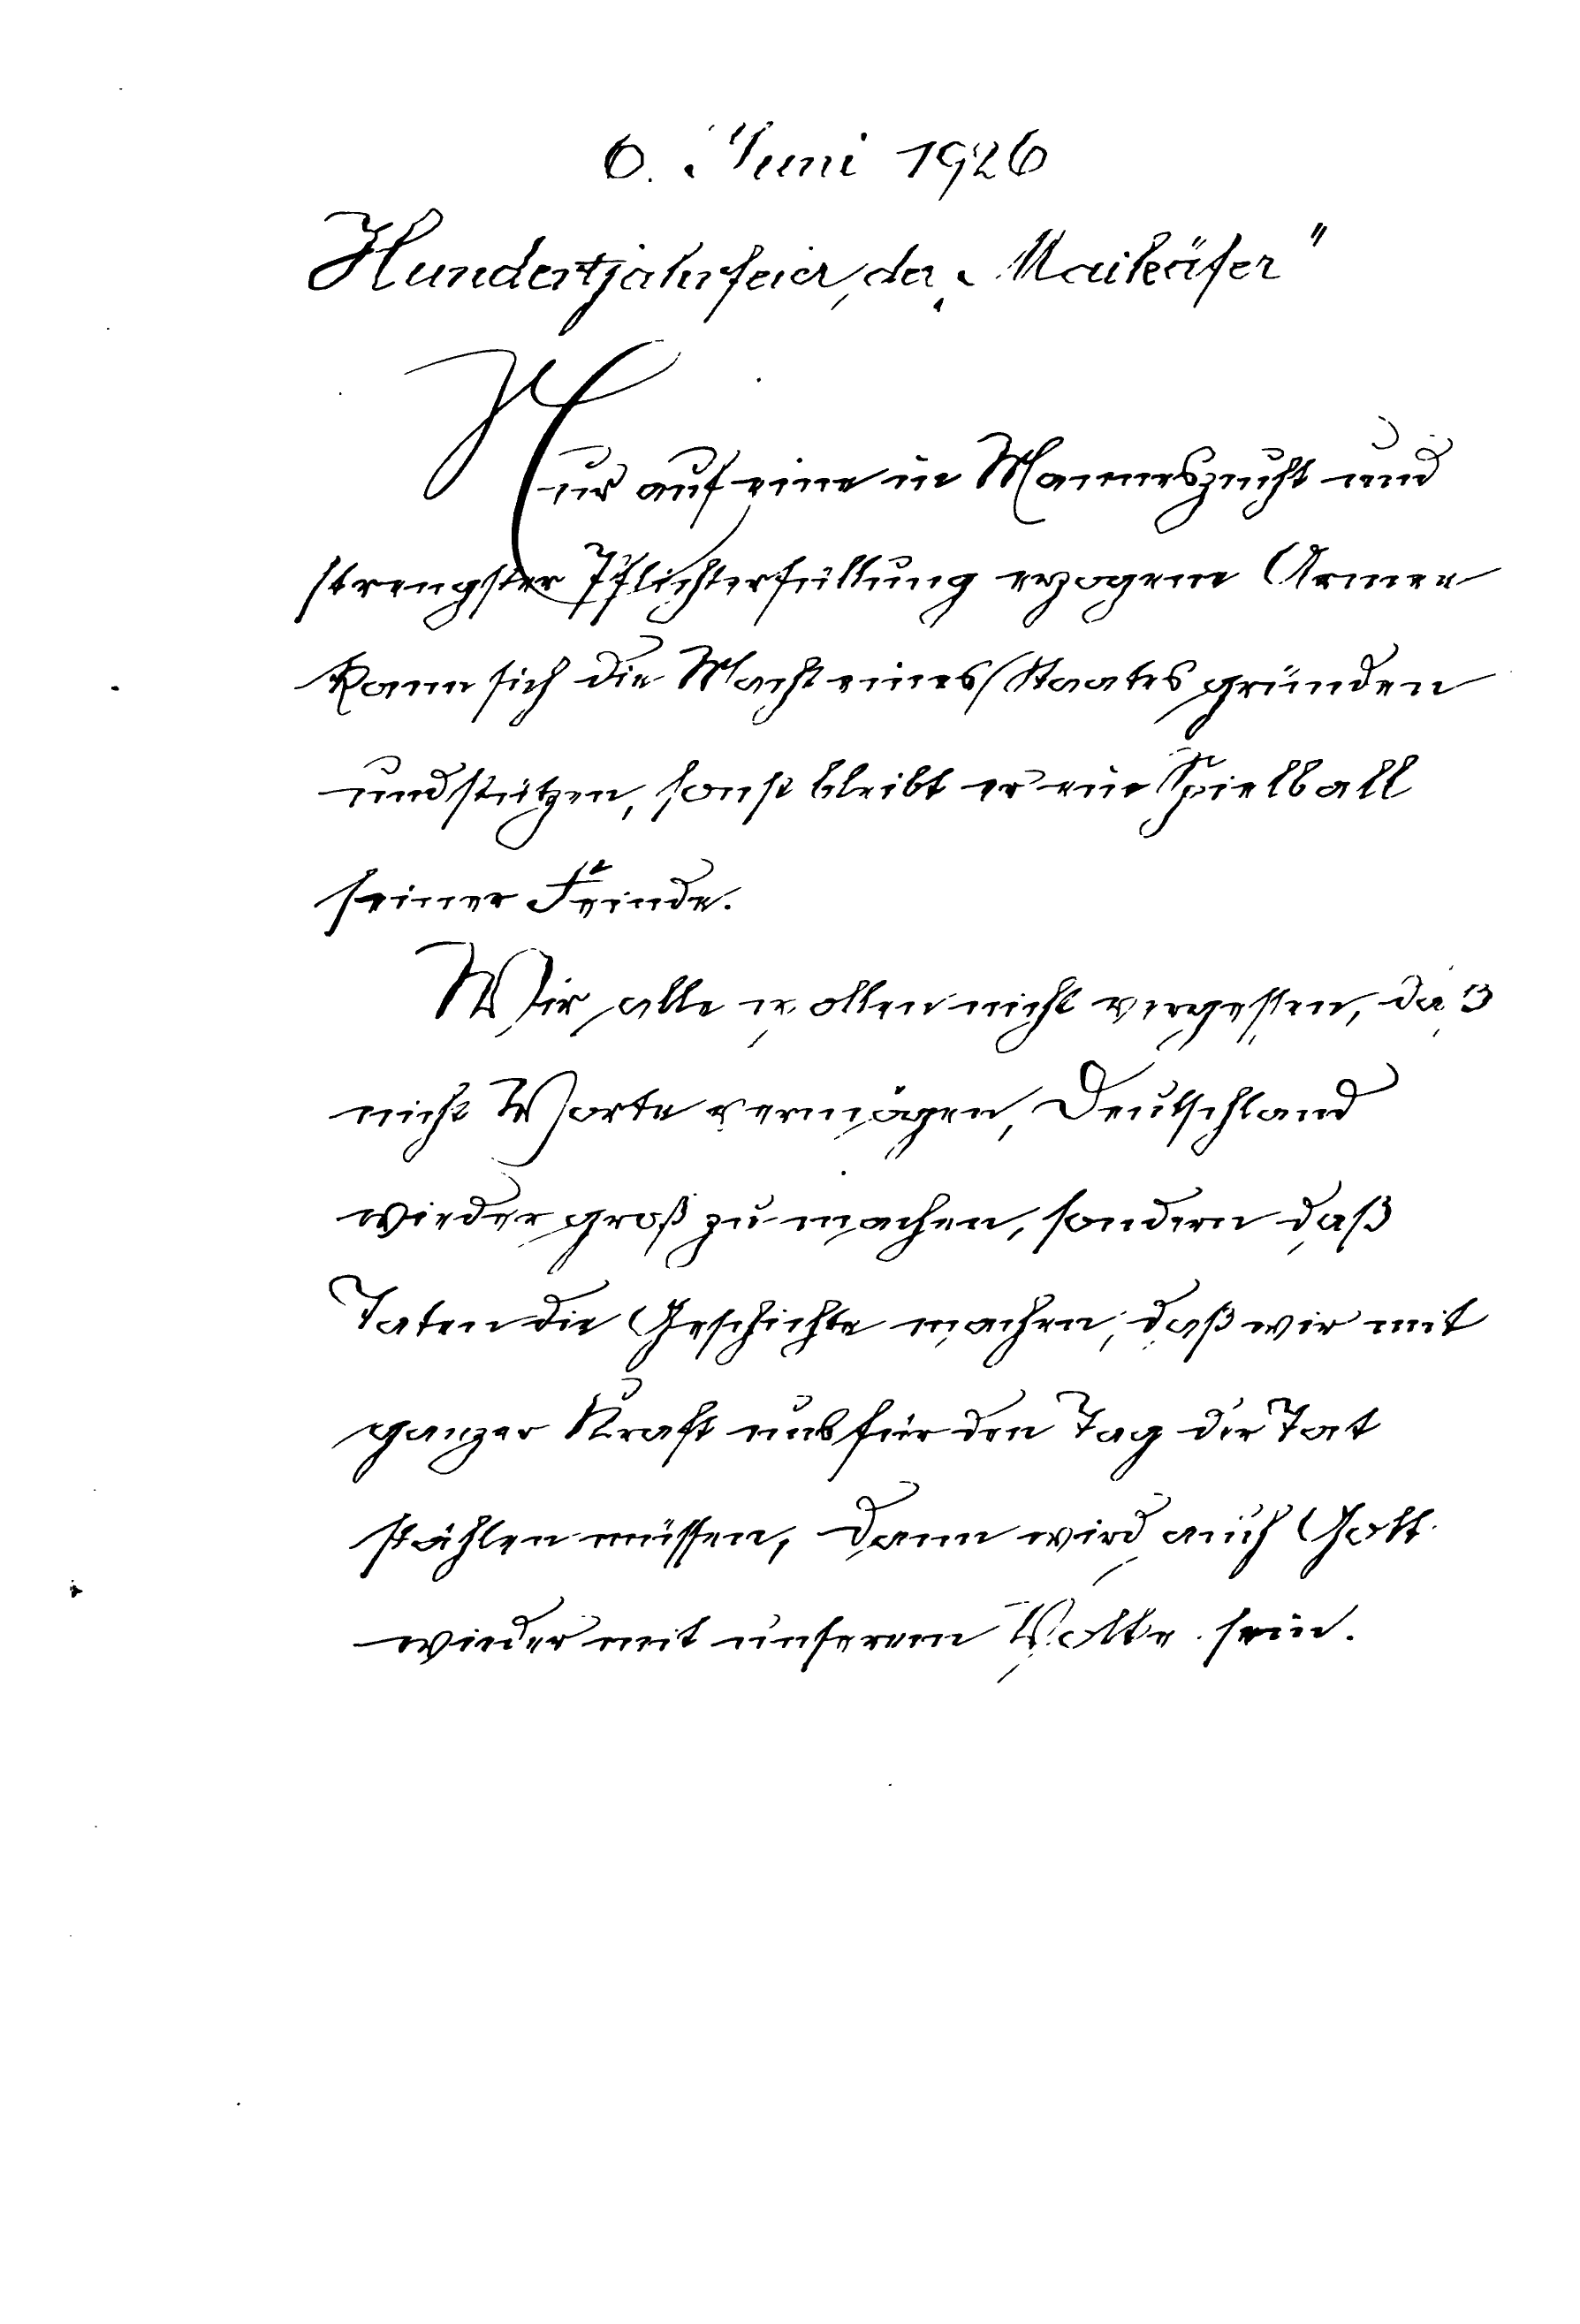 6. Juni 1926
Hundertjahrfeier der „Maikäfer"
Nur auf eine in Manneszucht und
strengster Pflichterfüllung erzogene Armee
kann sich die Macht eines Staates gründen
und stützen, sonst bleibt er ein Spielball
seiner Feinde.
Wir alle wollen nicht vergessen, daß
nicht Worte vermögen, Deutschland
wieder groß zu machen, sondern daß
Taten die Geschichte machen, daß wir mit
ganzer Kraft uns für den Tag der Tat
stählen müssen, dann wird auch Gott
wieder mit unserem Volke sein.